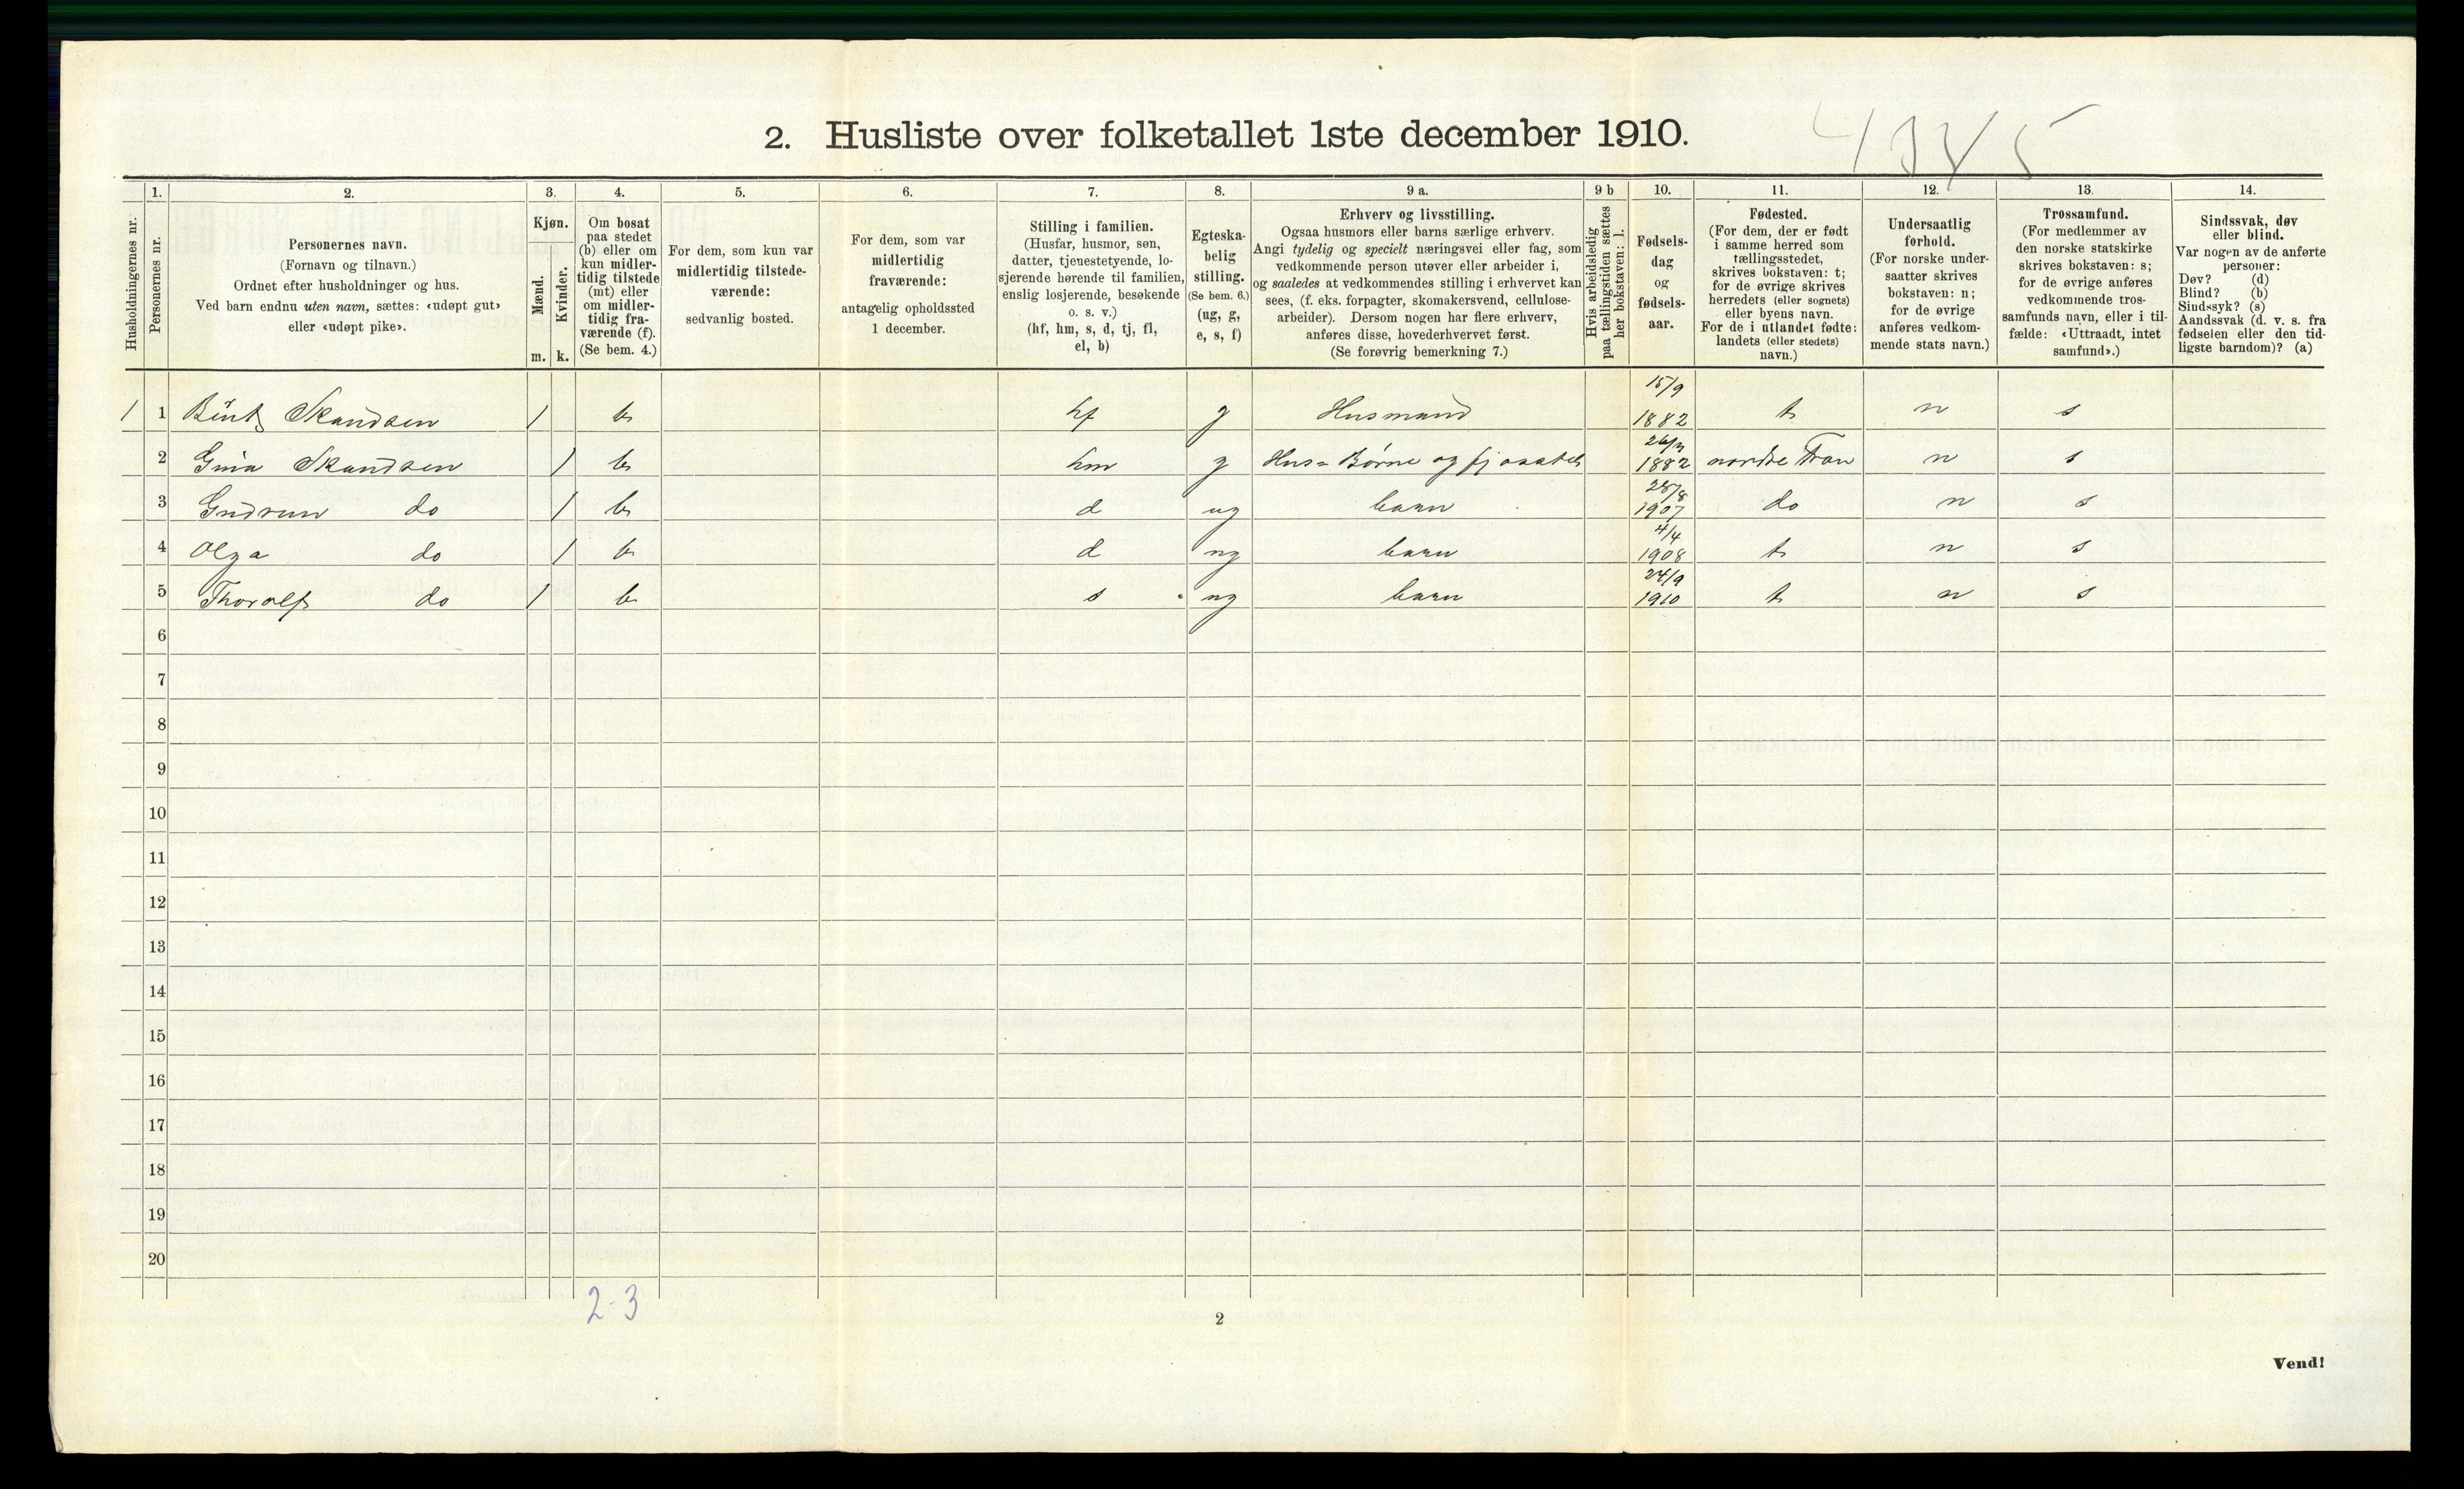 2. Husliste over folketallet 1ste december 1910.
Husholdningernes nr.
1.
Personernes nr.
2.
Personernes navn.
(Fornavn og tilnavn.)
Ordnet efter husholdninger og hus.
Ved barn endnu uten navn, sættes: «udøpt gut»
eller «udøpt pike».
3.
Kjøn.
Mænd.
Kvinder.
m. k.
4.
Om bosat
paa stedet
(b) eller om
kun midler-
tidig tilstede
(mt) eller
om midler-
tidig fra-
værende (f).
(Se bem. 4.)
5.
For dem, som kun var
midlertidig tilstede-
værende:
sedvanlig bosted.
6.
For dem, som var
midlertidig
fraværende:
antagelig opholdssted
1 december.
7.
Stilling i familien.
(Husfar, husmor, søn,
datter, tjenestetyende, lo-
sjerende hørende til familien,
enslig losjerende, besøkende
o. s. v.)
(hf, hm, s, d, tj, fl,
el, b)
8.
Egteska-
belig
stilling.
(Se bem. 6.)
(ug, g,
e, s, f)
9 a.
Erhverv og livsstilling.
Ogsaa husmors eller barns særlige erhverv.
Angi tydelig og specielt næringsvei eller fag, som
vedkommende person utøver eller arbeider i,
og saaledes at vedkommendes stilling i erhvervet kan
sees, (f. eks. forpagter, skomakersvend, cellulose-
arbeider). Dersom nogen har flere erhverv,
anføres disse, hovederhvervet først.
(Se forøvrig bemerkning 7.)
9 b
Hvis arbeidsledig
paa tællingstiden sættes
her bokstaven: l.
10.
Fødsels-
dag
og
fødsels-
aar.
11.
Fødested.
(For dem, der er født
i samme herred som
tællingsstedet,
skrives bokstaven: t;
for de øvrige skrives
herredets (eller sognets)
eller byens navn.
For de i utlandet fødte:
landets (eller stedets)
navn.)
12.
Undersaatlig
forhold.
(For norske under-
saatter skrives
bokstaven: n;
for de øvrige
anføres vedkom-
mende stats navn.)
13.
Trossamfund.
(For medlemmer av
den norske statskirke
skrives bokstaven: s;
for de øvrige anføres
vedkommende tros-
samfunds navn, eller i til-
fælde: «Uttraadt, intet
samfund».)
14.
Sindssvak, døv
eller blind.
Var nogen av de anførte
personer:
Døv? (d)
Blind? (b)
Sindssyk? (s)
Aandssvak (d. v. s. fra
fødselen eller den tid-
ligste barndom)? (a)
1 1 Skandsen 1 b hf g Husmand 15/9 1882 t n s
2 Gina Skandsen 1 b hm g Hus= Børne og 1882 nordre n s
3 Gudrun do 1 b d ug barn 28/8 1907 do n s
4 Olga do 1 b d ug barn 4/4 1908 t n s
5 Thoralf do 1 b s ug barn 24/9 1910 t n s
6
7
8
9
10
11
12
13
14
15
16
17
18
19
20
2-3
2
Vend!